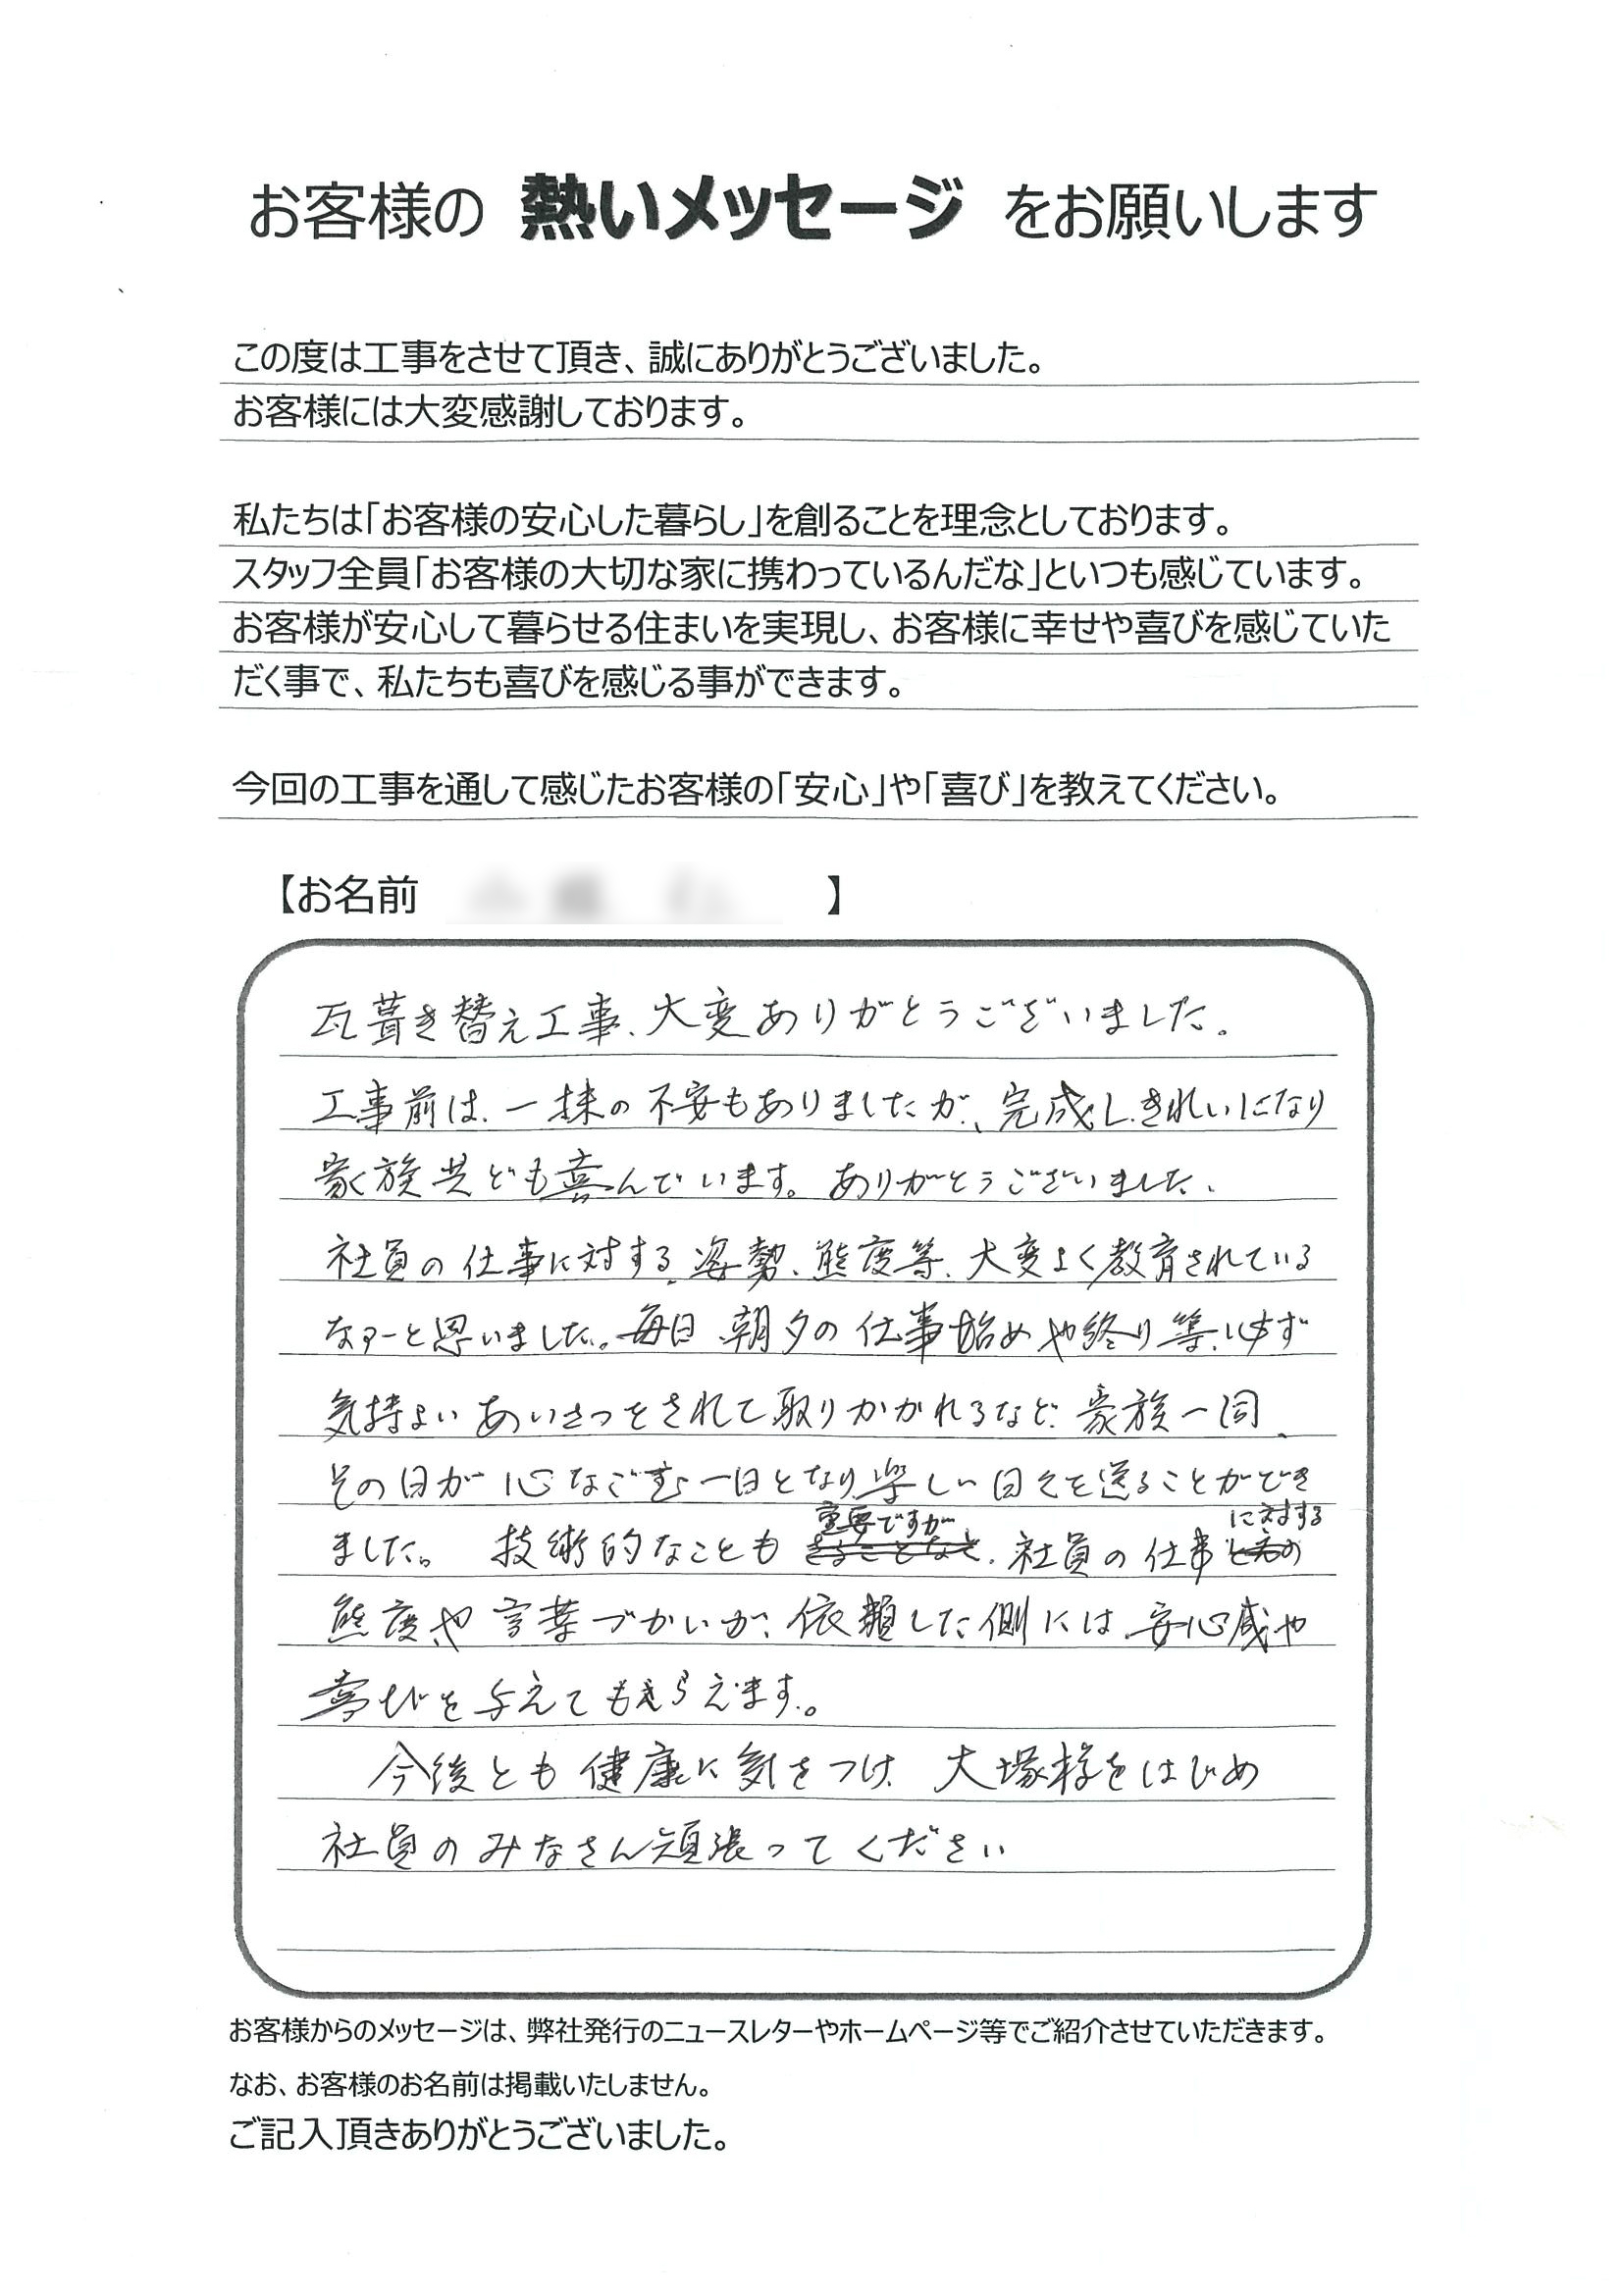 お客様の 熱いメッセージ をお願いします
この度は工事をさせて頂き、誠にありがとうございました。
お客様には大変感謝しております。
私たちは「お客様の安心した暮らし」を創ることを理念としております。
スタッフ全員「お客様の大切な家に携わっているんだな」といつも感じています。
お客様が安心して暮らせる住まいを実現し、お客様に幸せや喜びを感じていた
だく事で、私たちも喜びを感じる事ができます。
今回の工事を通して感じたお客様の「安心」や「喜び」を教えてください。
【お名前 】
瓦葺き替え工事、大変ありがとうございました。
工事前は、一抹の不安もありましたが、完成し、きれいになり
家族共ども喜んでいます。ありがとうございました。
社員の仕事に対する、姿勢、態度等、大変よく教育されている
なァーと思いました。毎日、朝夕の仕事始めや終り等、必ず
気持よいあいさつをされて取りかかれるなど、家族一同、
その日が心なごむ一日となり楽しい日々を送ることができ
ました。 技術的なことも 重要ですが、社員の仕事に対する
態度や言葉づかいが、依頼した側には、安心感や
喜びを与えてもらえます。
今後とも健康に気をつけ、大塚様をはじめ
社員のみなさん頑張ってください
お客様からのメッセージは、弊社発行のニュースレターやホームページ等でご紹介させていただきます。
なお、お客様のお名前は掲載いたしません。
ご記入頂きありがとうございました。